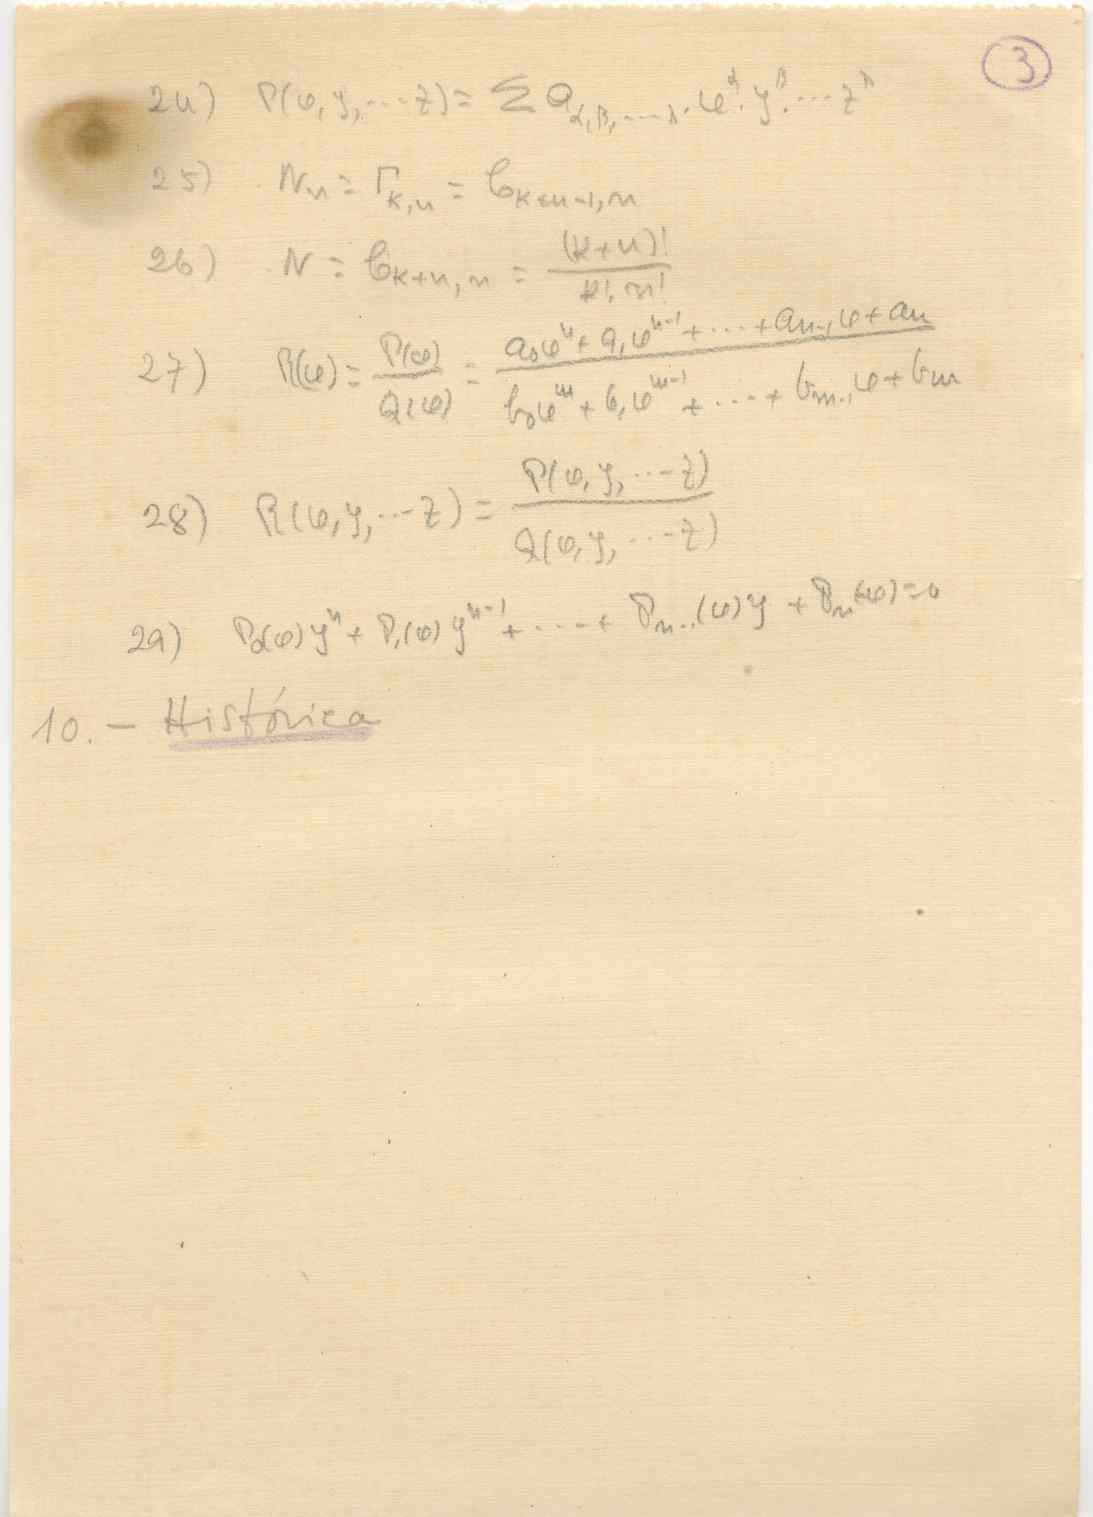 3
24) P(x, y, ... z) = Σ a_{α,β,....λ}. x^α. y^β. ... z^λ
25) N_n = Γ_{k,n} = C_{k+n-1,n}
26) N = C_{k+n,n} = (k+n)! / k!.n!
27) R(x) = P(x)/Q(x) = (a_0x^n + a_1x^{n-1} + ... + a_{n-1}x + a_n) / (b_0x^m + b_1x^{m-1} + .... + b_{m-1}x + b_m)
28) R(x, y, ... z) = P(x, y, ... z) / Q(x, y, ... z)
29) P_0(x)y^n + P_1(x)y^{n-1} + .... + P_{n-1}(x)y + P_n(x) = 0
10. – Histórica